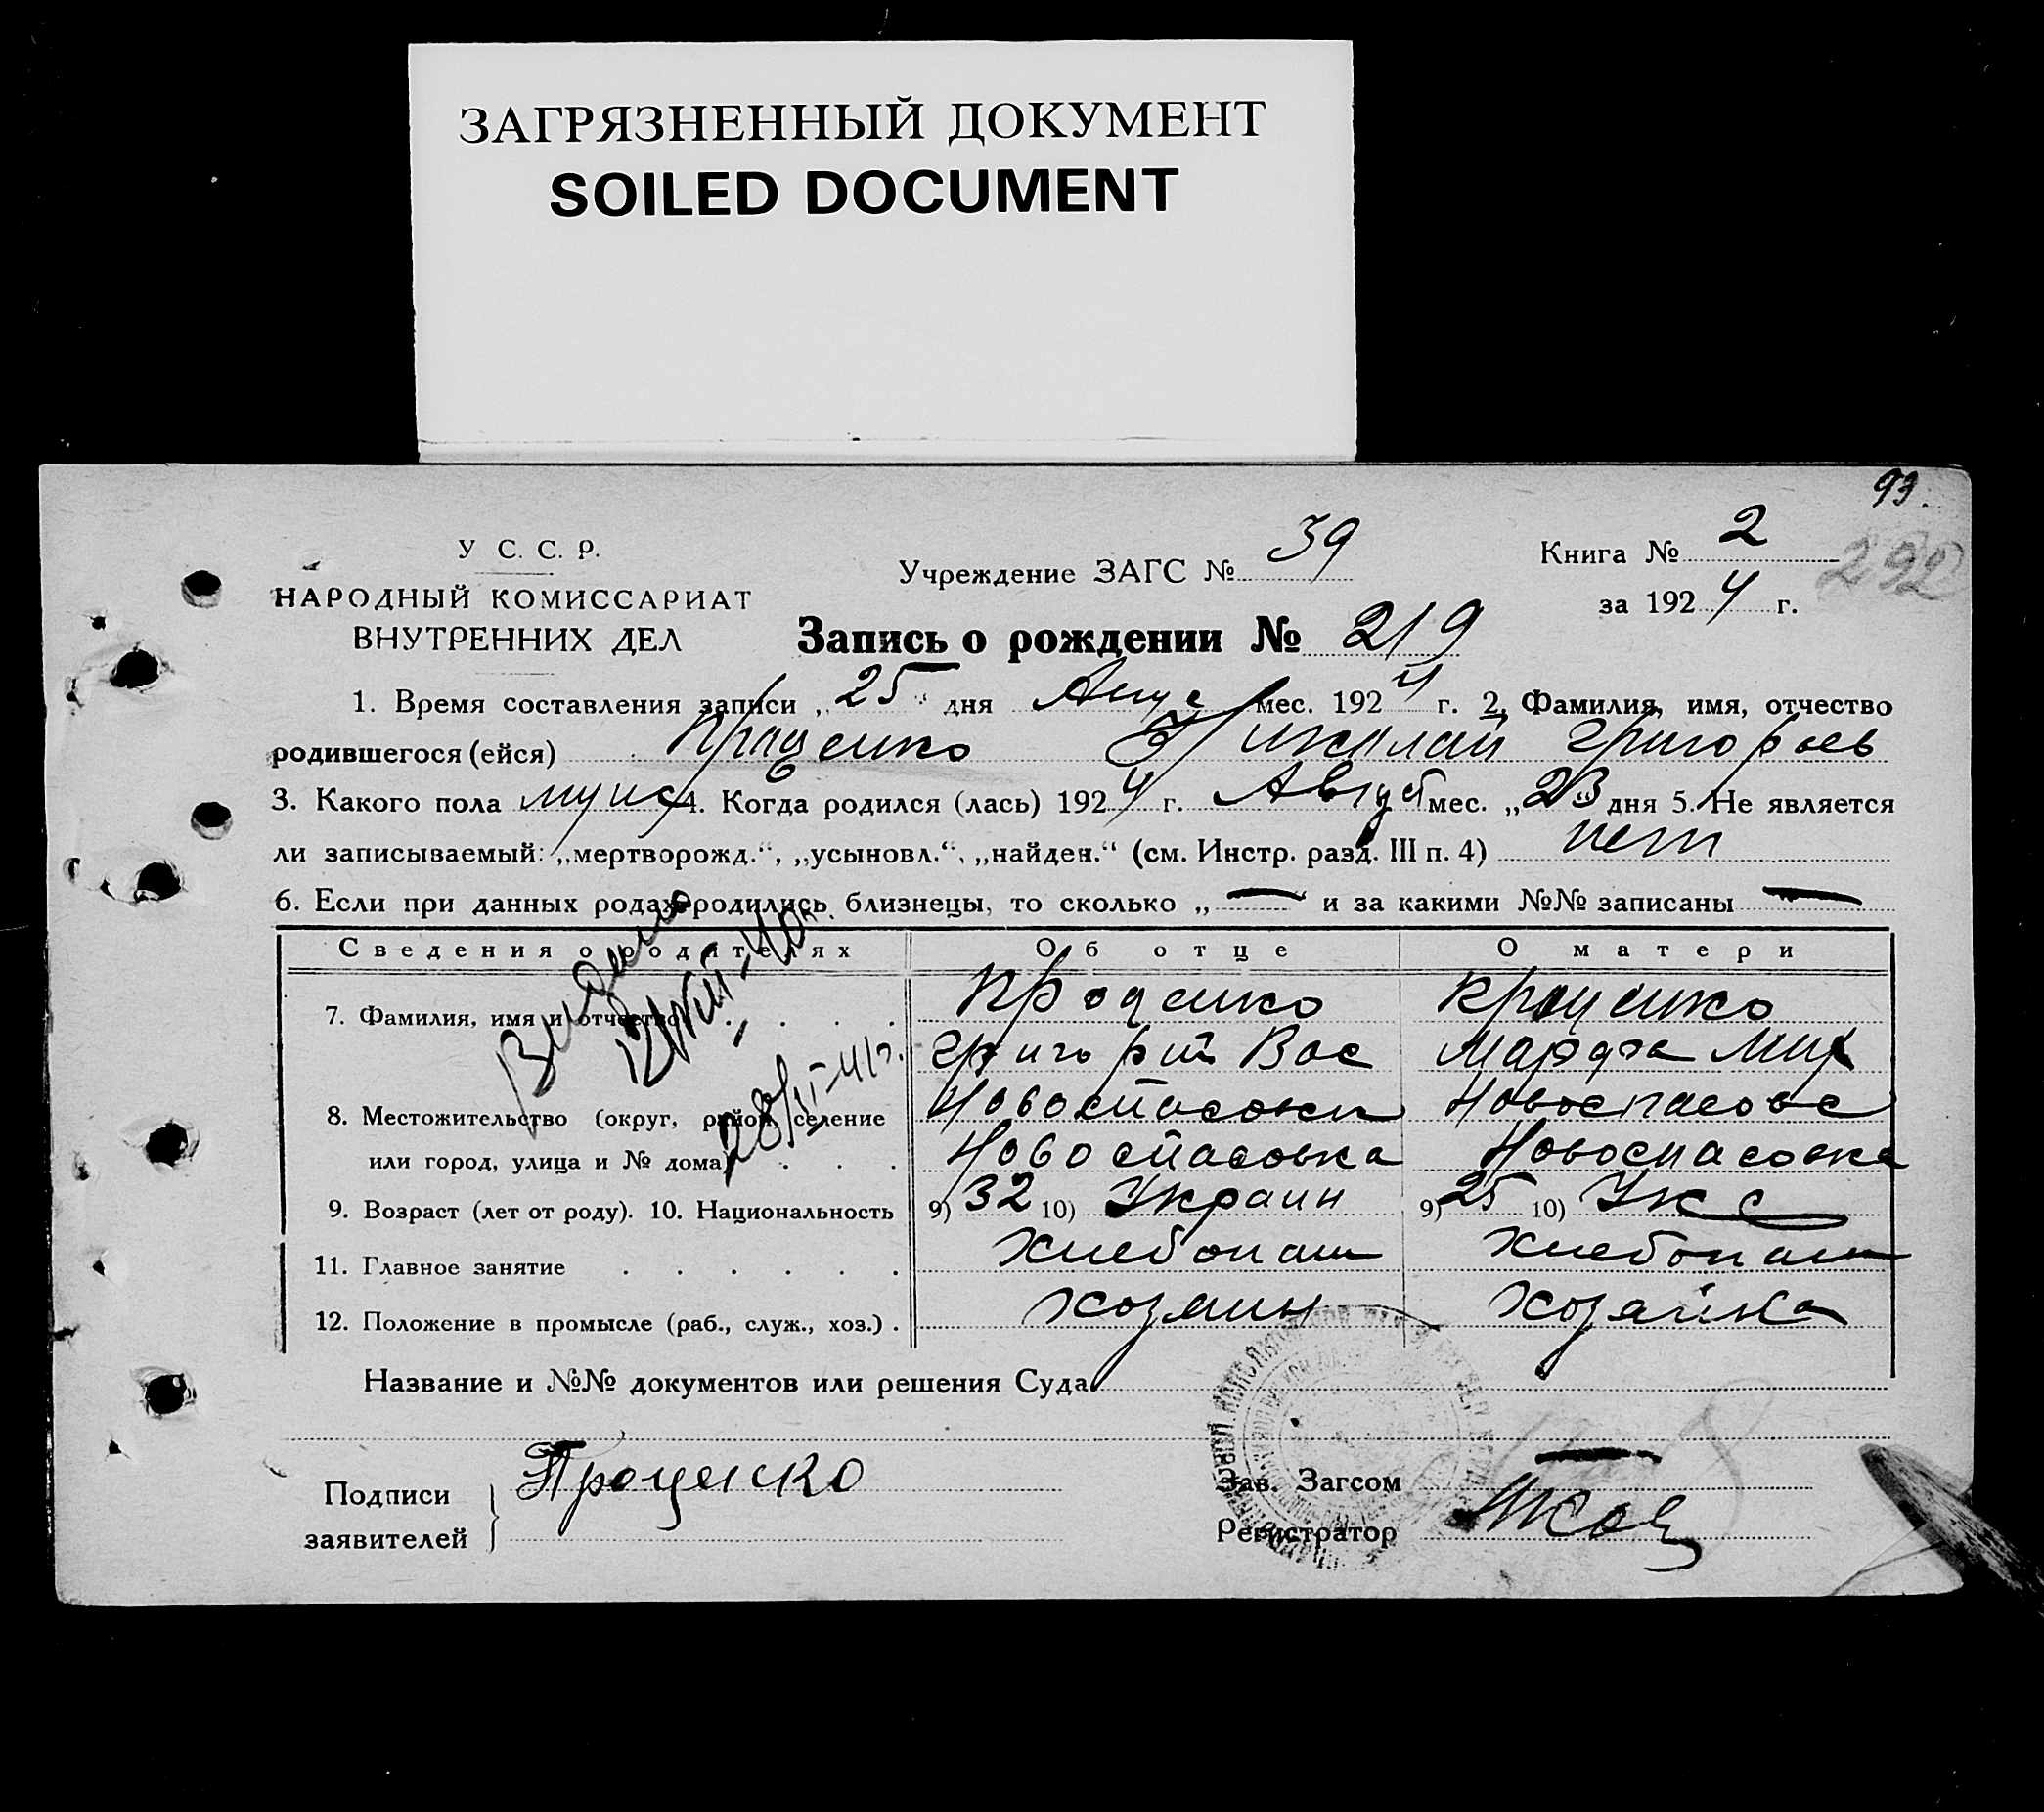 ЗАГРЯЗНЕННЫЙ ДОКУМЕНТ
SOILED DOCUMENT
93.
У С. С. Р.
НАРОДНЫЙ КОМИССАРИАТ
ВНУТРЕННИХ ДЕЛ
Учреждение ЗАГС № 39
Книга № 2
292
за 1924 г.
Запись о рождении № 219
1. Время составления записи „25“ дня мес. 1924 г. 2. Фамилия, имя, отчество
родившегося (ейся) Проценко Николай Григорьев
3. Какого пола муж 4. Когда родился (лась) 1924 г. Август мес. „23“ дня 5. Не является
ли записываемый: „мертворожд.“, „усыновл.“, „найден.“ (см. Инстр. разд. III п. 4) нет
6. Если при данных родах родились близнецы, то сколько „—“ и за какими №№ записаны —
Сведения о родителях Об отце О матери
7. Фамилия, имя и отчество Проценко Проценко
Григорий Вас Марфа Мих
Новоспасовка Новоспасовс
8. Местожительство (округ, район, селение
или город, улица и № дома) Новоспасовка Новоспасовка
9. Возраст (лет от роду). 10. Национальность 9) 32 10) Украин 9) 25 10)
11. Главное занятие Хлебопаш Хлебопаш
12. Положение в промысле (раб., служ., хоз.) Хозяин Хозяйка
Название и №№ документов или решения Суда
Подписи
заявителей
Проценко
Зав. Загсом —
Регистратор